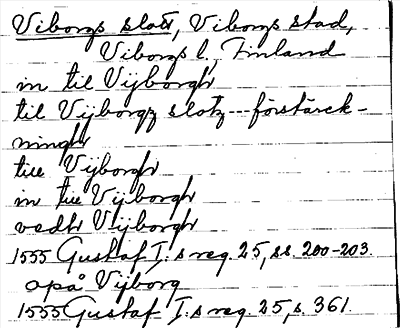 Viborgs slott, Viborgs stad,
Viborgs l., Finland
in til Vijborgh
til Vijborgz slotz---förstärck-
ningh
till Vijborgh
in till Vijborgh
vedh Vijborgh
1555 Gustaf I:s reg. 25, ss. 200-203.
opå Vijborg
1555 Gustaf I:s reg. 25, s. 361.